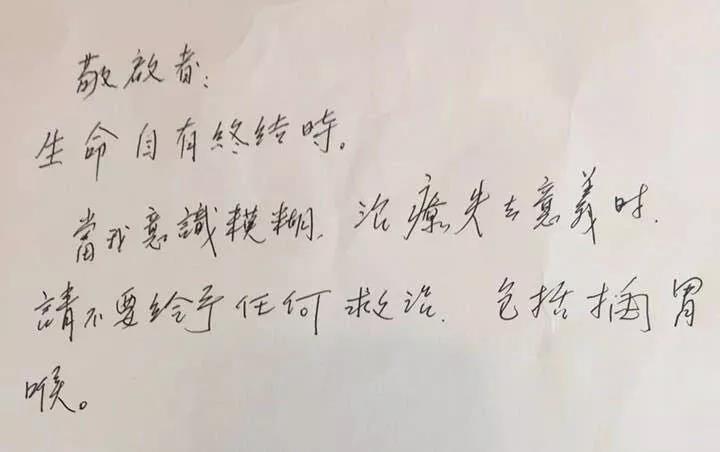 敬啟者：
生命自有終结時。
當我意識模糊，治療失去意義时，
請不要给予任何救治，包括插胃
喉。